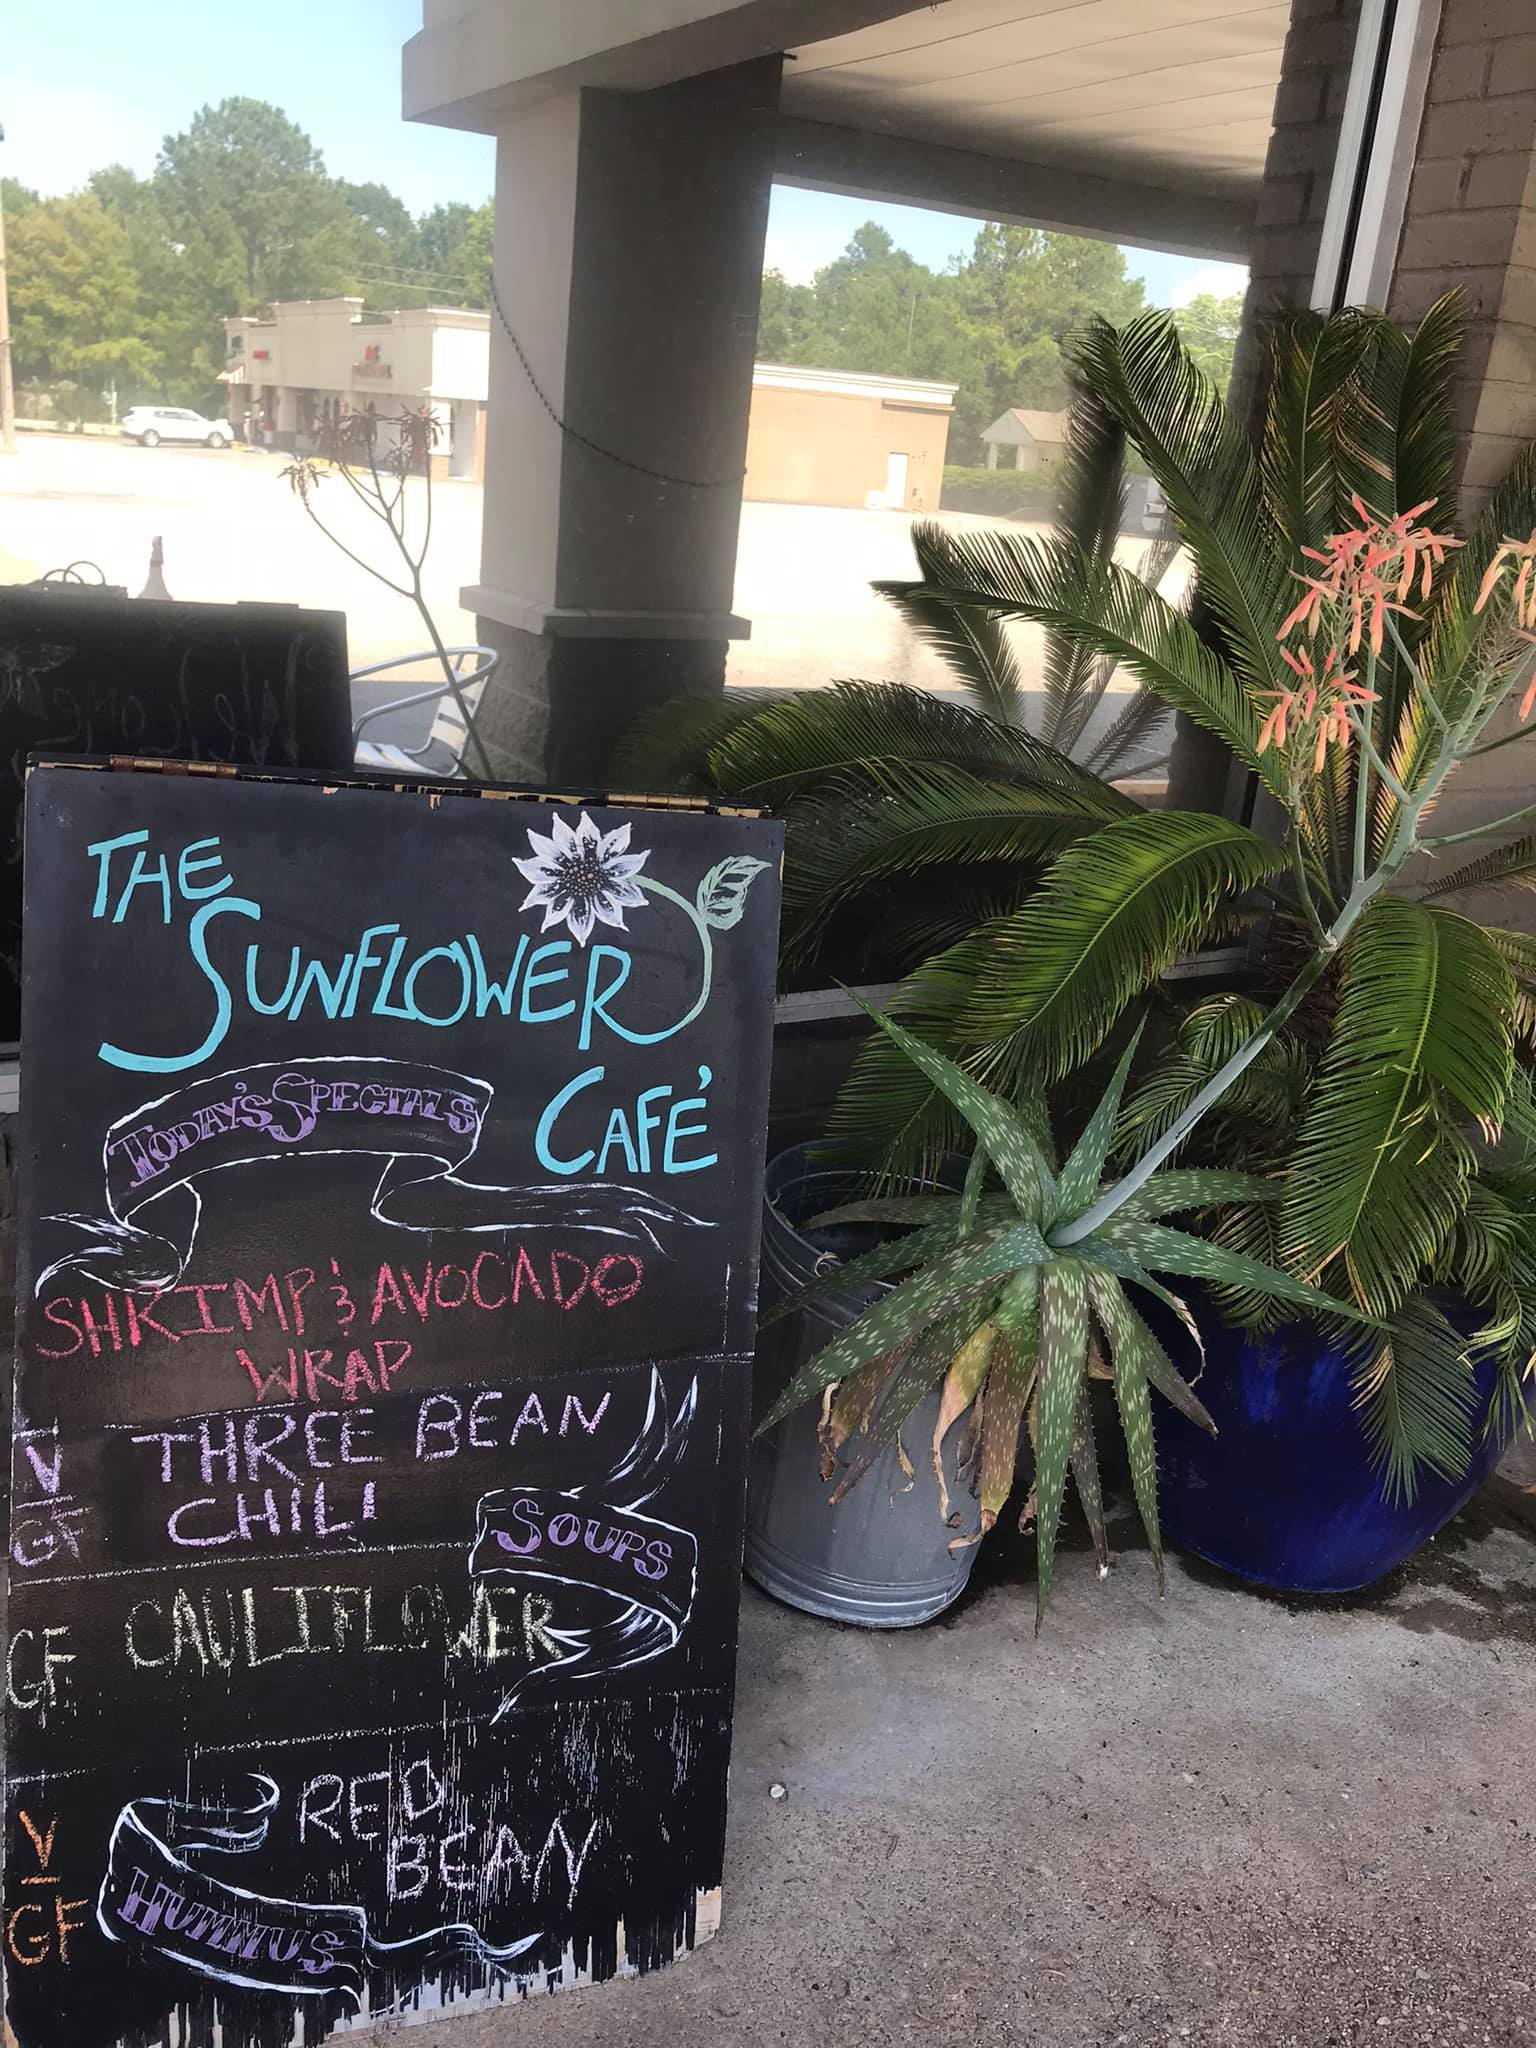 THE
SUNFLOWER
CAFÉ
TODAY'S SPECIALS
SHRIMP & AVOCADO
WRAP
V
GF
THREE BEAN
CHILI
SOUPS
GF
CAULIFLOWER
V
GF
RED
BEAN
HUMMUS